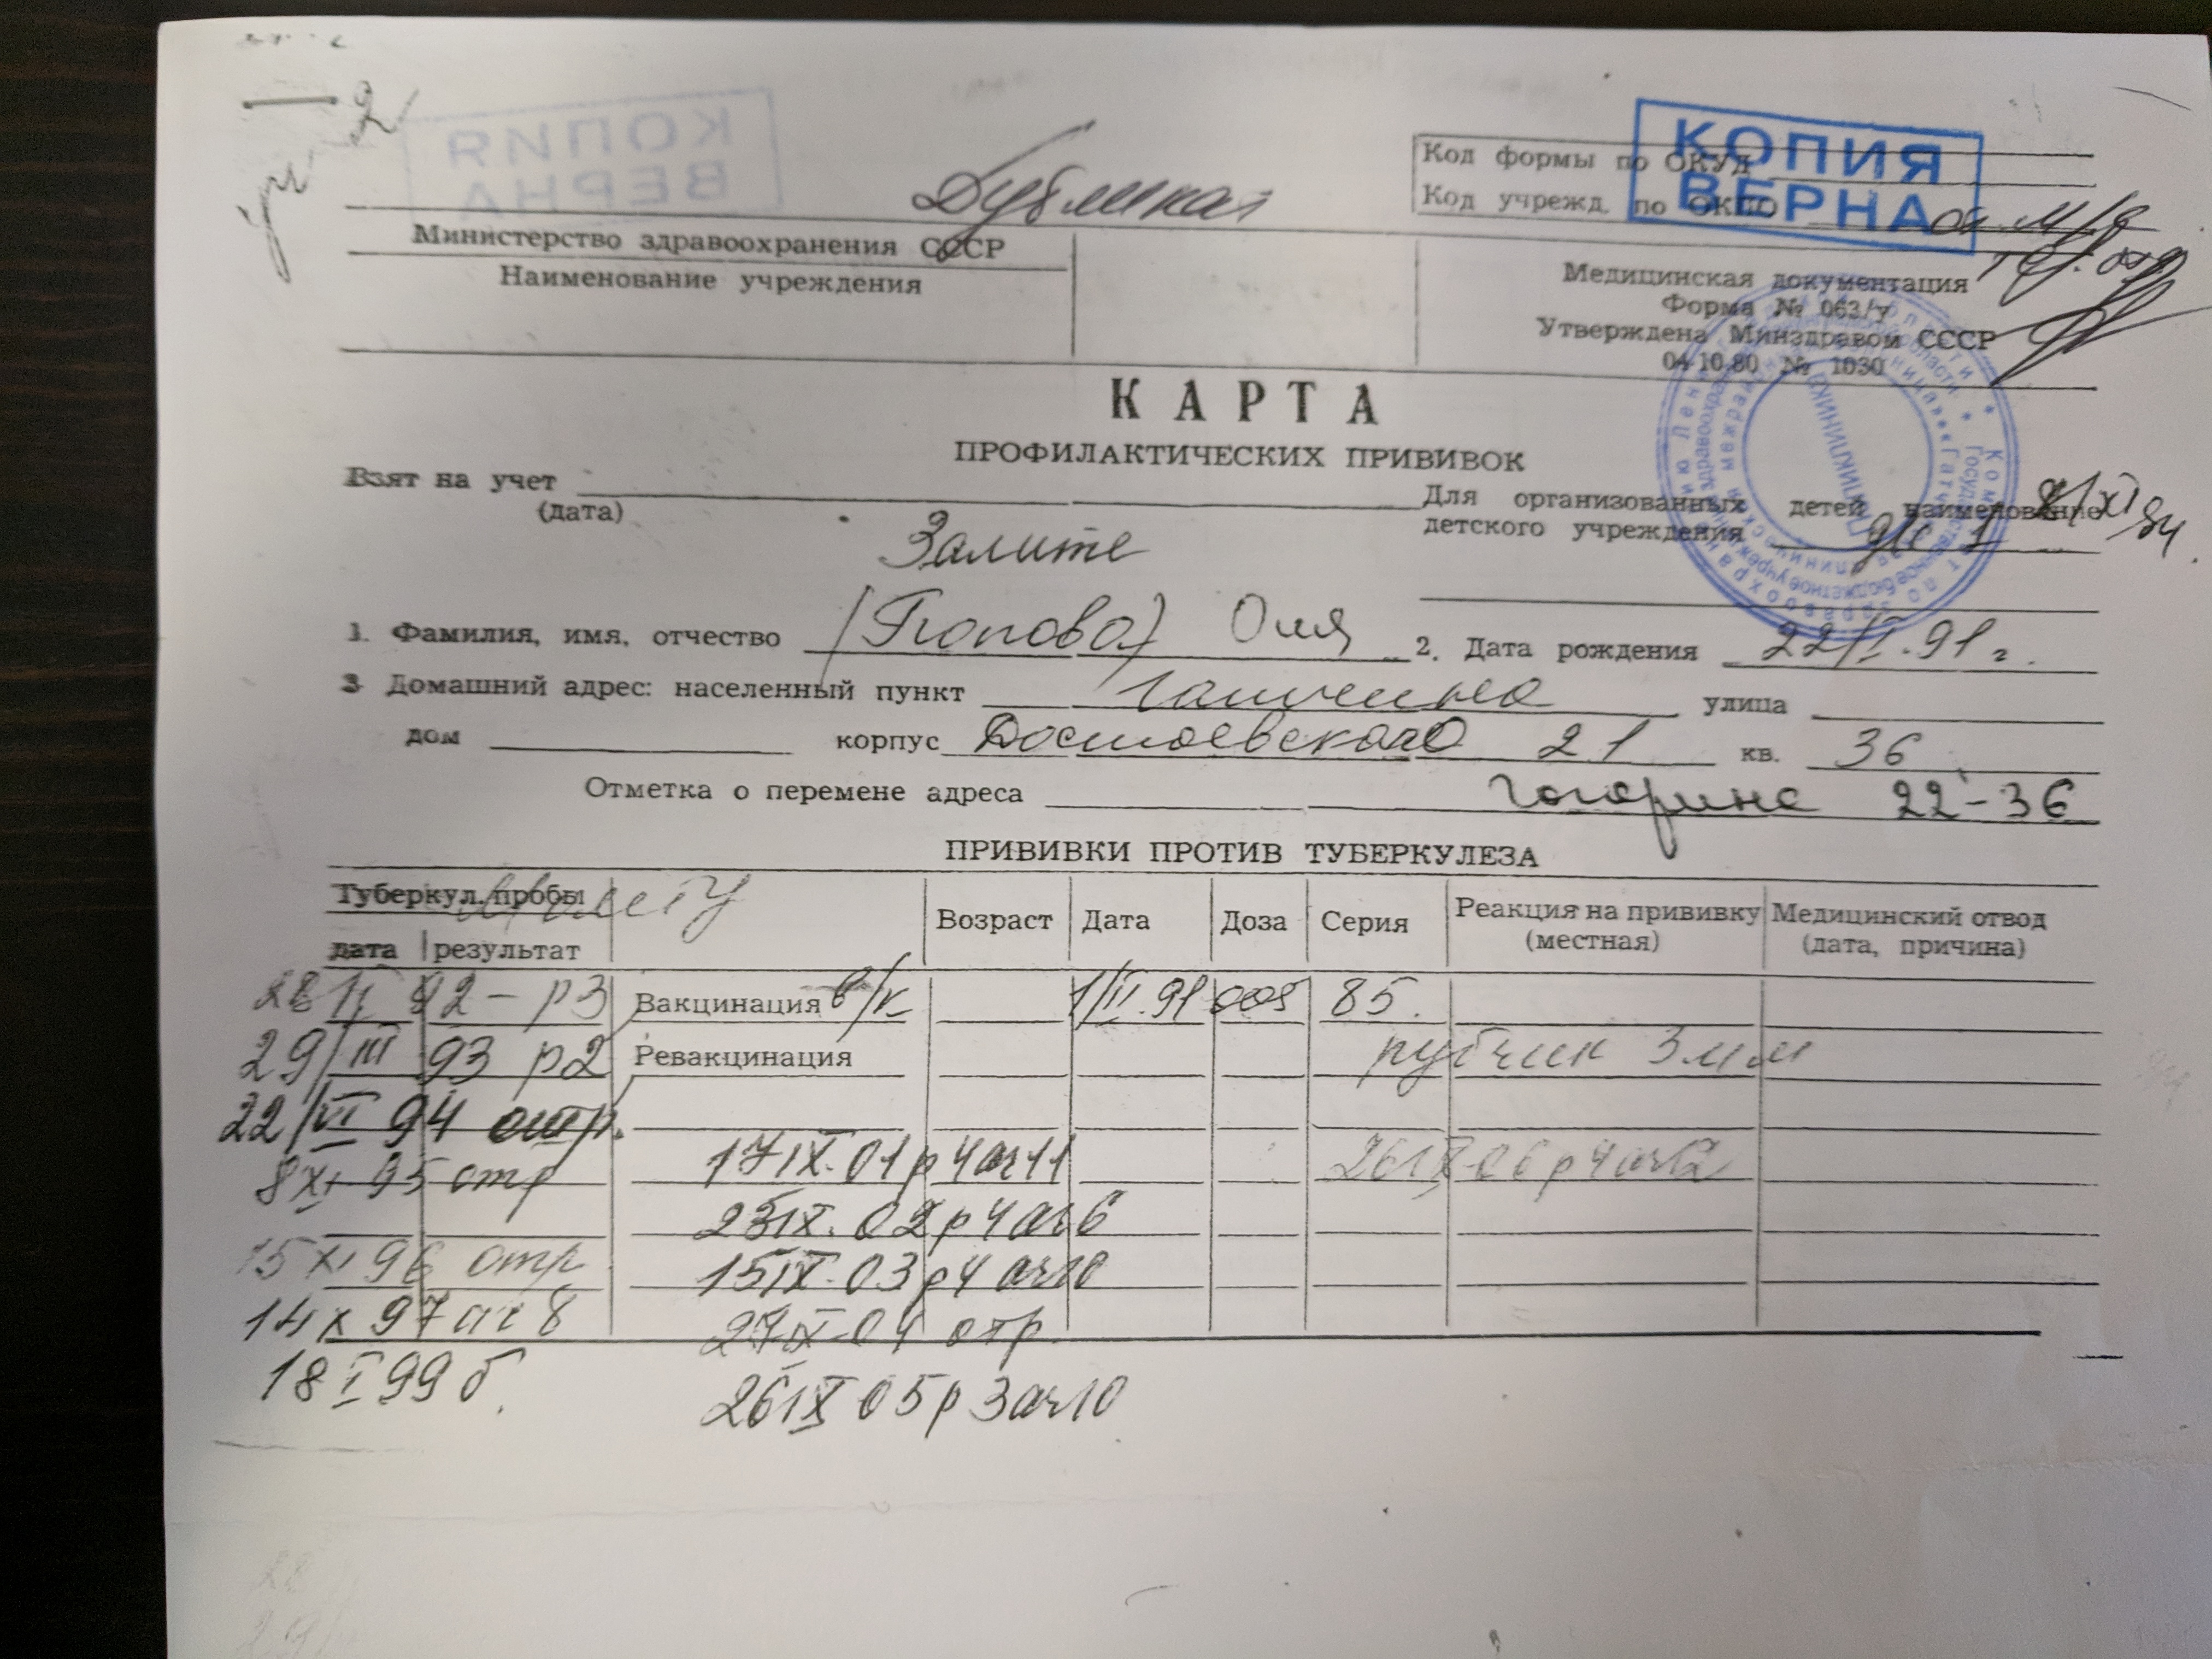 Дубликат
Код формы по ОКУД
Код учрежд. по ОКПО
КОПИЯ
ВЕРНА
Министерство здравоохранения СССР
Наименование учреждения
Медицинская документация
Форма № 063/у
Утверждена Минздравом СССР
04.10.80 № 1030
КАРТА
ПРОФИЛАКТИЧЕСКИХ ПРИВИВОК
Взят на учет
(дата)
Для организованных детей наименование
детского учреждения д/с 1
Залите
1. Фамилия, имя, отчество (Попова) Оля 2. Дата рождения 22/I.91г.
3 Домашний адрес: населенный пункт Гатчина улица
дом корпус Достоевского 21 кв. 36
Отметка о перемене адреса Гагарина 22-36
ПРИВИВКИ ПРОТИВ ТУБЕРКУЛЕЗА
Туберкул. пробы
дата результат Возраст Дата Доза Серия Реакция на прививку (местная) Медицинский отвод (дата, причина)
92 - р3 Вакцинация в/к 1/II.91 005 85.
29/III 93 р2 Ревакцинация рубчик 3мм
22/VI 94 отр.
8 XI 95 отр 17 IX.01 р4
15 XI 96 отр
23 IX.02 р4
14 X 97 8
15 IX.03 р4
27 IX 04 отр.
18 I 99
26 IX 05 р3
26 IX 06 р4